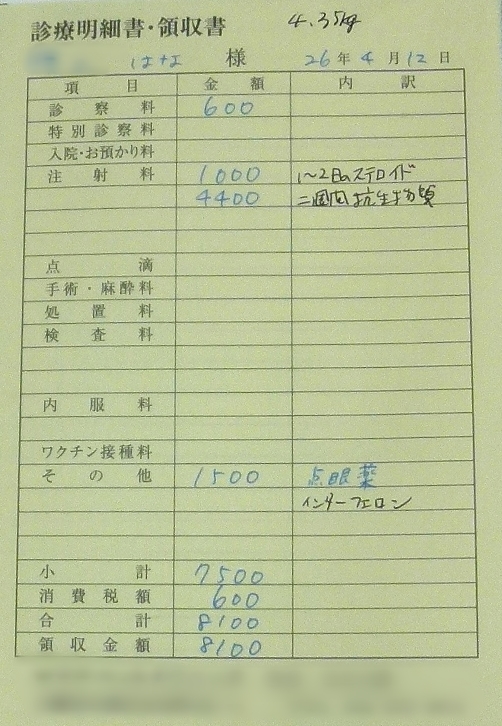 診療明細書・領収書 4.35kg
はな 様 26年4月12日
項目 金額 内訳
診察料 600
特別診察料
入院・お預かり料
注射料 1000 1〜2日のステロイド
4400 二週間抗生物質
点滴
手術・麻酔料
処置料
検査料
内服料
ワクチン接種料
その他 1500 点眼薬
インターフェロン
小計 7500
消費税額 600
合計 8100
領収金額 8100